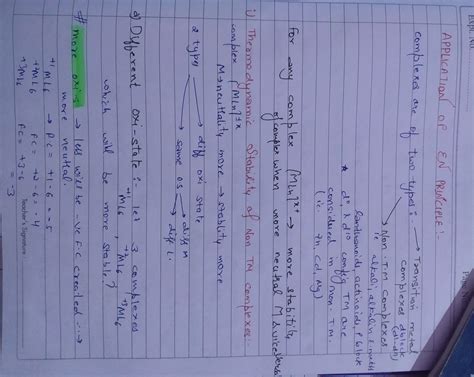 APPLICATION OF EN PRINCIPLE:-
complexes are of two types:- → Transition metal
complexes dblock
(d1-d9)
→ Non-TM complexes
i.e. alkali, alkaline
* d0 & d10 config TM are
lanthanoids, actinoids, p block
considered in non-TM.
(i.e. Zn, Cd, Hg)
for any complex [MLn]±x → more stability
of complex when more neutral M & vice versa
i) Thermodynamic Stability of Non TM complexes:-
complex [MLn]±x
M → neutrality more → stability more
2 types → diff oxi state
→ same o.s → diff M
→ diff L
a) Different oxi-state: Let 3 complexes
+1ML6, +2ML6, +3ML6
which will be more stable?
# more oxi → less will be -ve F.C created →
more neutral.
+1ML6 → FC = +1-6 = -5
+2ML6 FC = +2-6 = -4
+3ML6 FC = +3-6
= -3
Teacher's Signature